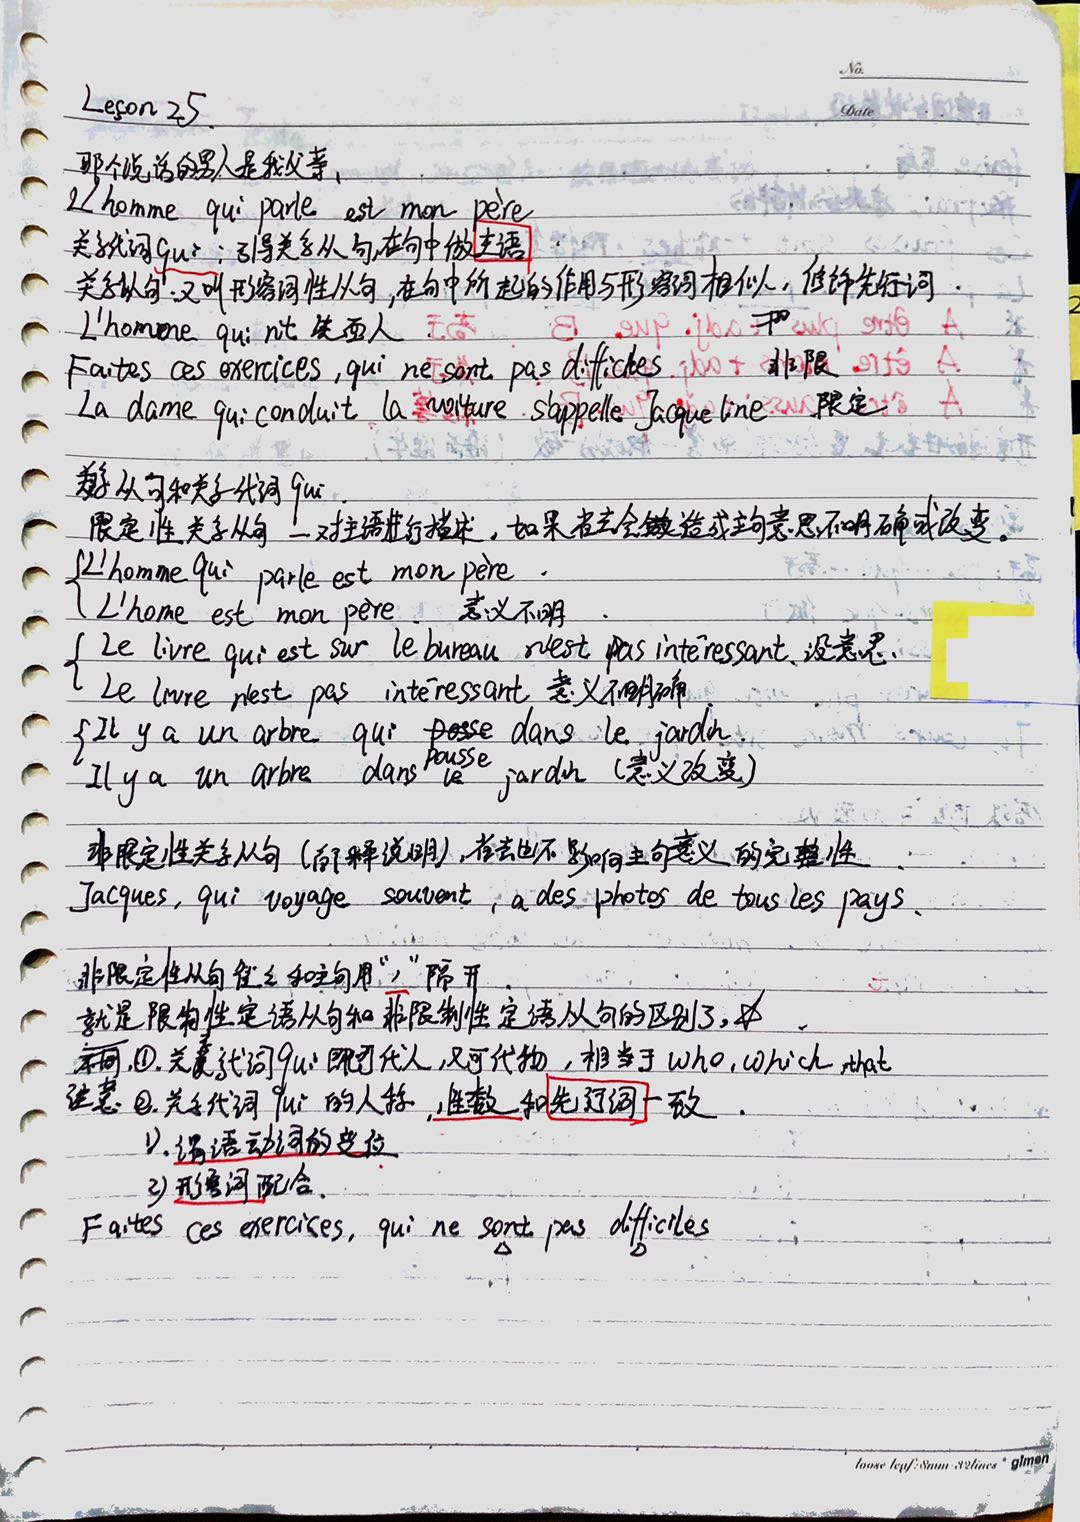 No.
Leçon 25
Date
那个说话的男人是我父亲.
L'homme qui parle est mon père
关系代词qui: 引导关系从句,在句中做主语
关系从句.又叫形容词性从句,在句中所起的作用与形容词相似,修饰先行词.
L'homme qui rit 笑面人
Faites ces exercices, qui ne sont pas difficiles 非限
La dame qui conduit la voiture s'appelle Jacqueline 限定
关系从句和关系代词qui.
限定性关系从句—对主语进行描述,如果省去会造成主句意思不明确或改变。
L'homme qui parle est mon père.
L'home est mon père. 意义不明.
Le livre qui est sur le bureau n'est pas intéressant. 没意思.
Le livre n'est pas intéressant 意义不明确
Il y a un arbre qui pousse dans le jardin.
Il y a un arbre dans le jardin (意义改变)
非限定性关系从句(解释说明),省去也不影响主句意义的完整性
Jacques, qui voyage souvent, a des photos de tous les pays.
非限定性从句 和主句用","隔开.
就是限制性定语从句和非限制性定语从句的区别了,☆.
①.关系代词qui 既可代人,又可代物,相当于who,which,that
注意.②.关系代词qui的人称,性数和先行词一致.
1).谓语动词的变位
2)形容词配合.
Faites ces exercices, qui ne sont pas difficiles
loose leaf:8mm·32lines * glmen